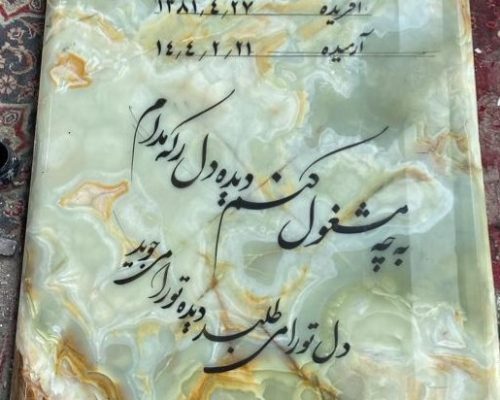 آفریده ۱۳۸۱٫۴٫۲۷
آرمیده ۱۴۰۴٫۲٫۲۱
به چه مشغول کنم دیده دل را که مدام
دل تو را می طلبد دیده تو را می جوید